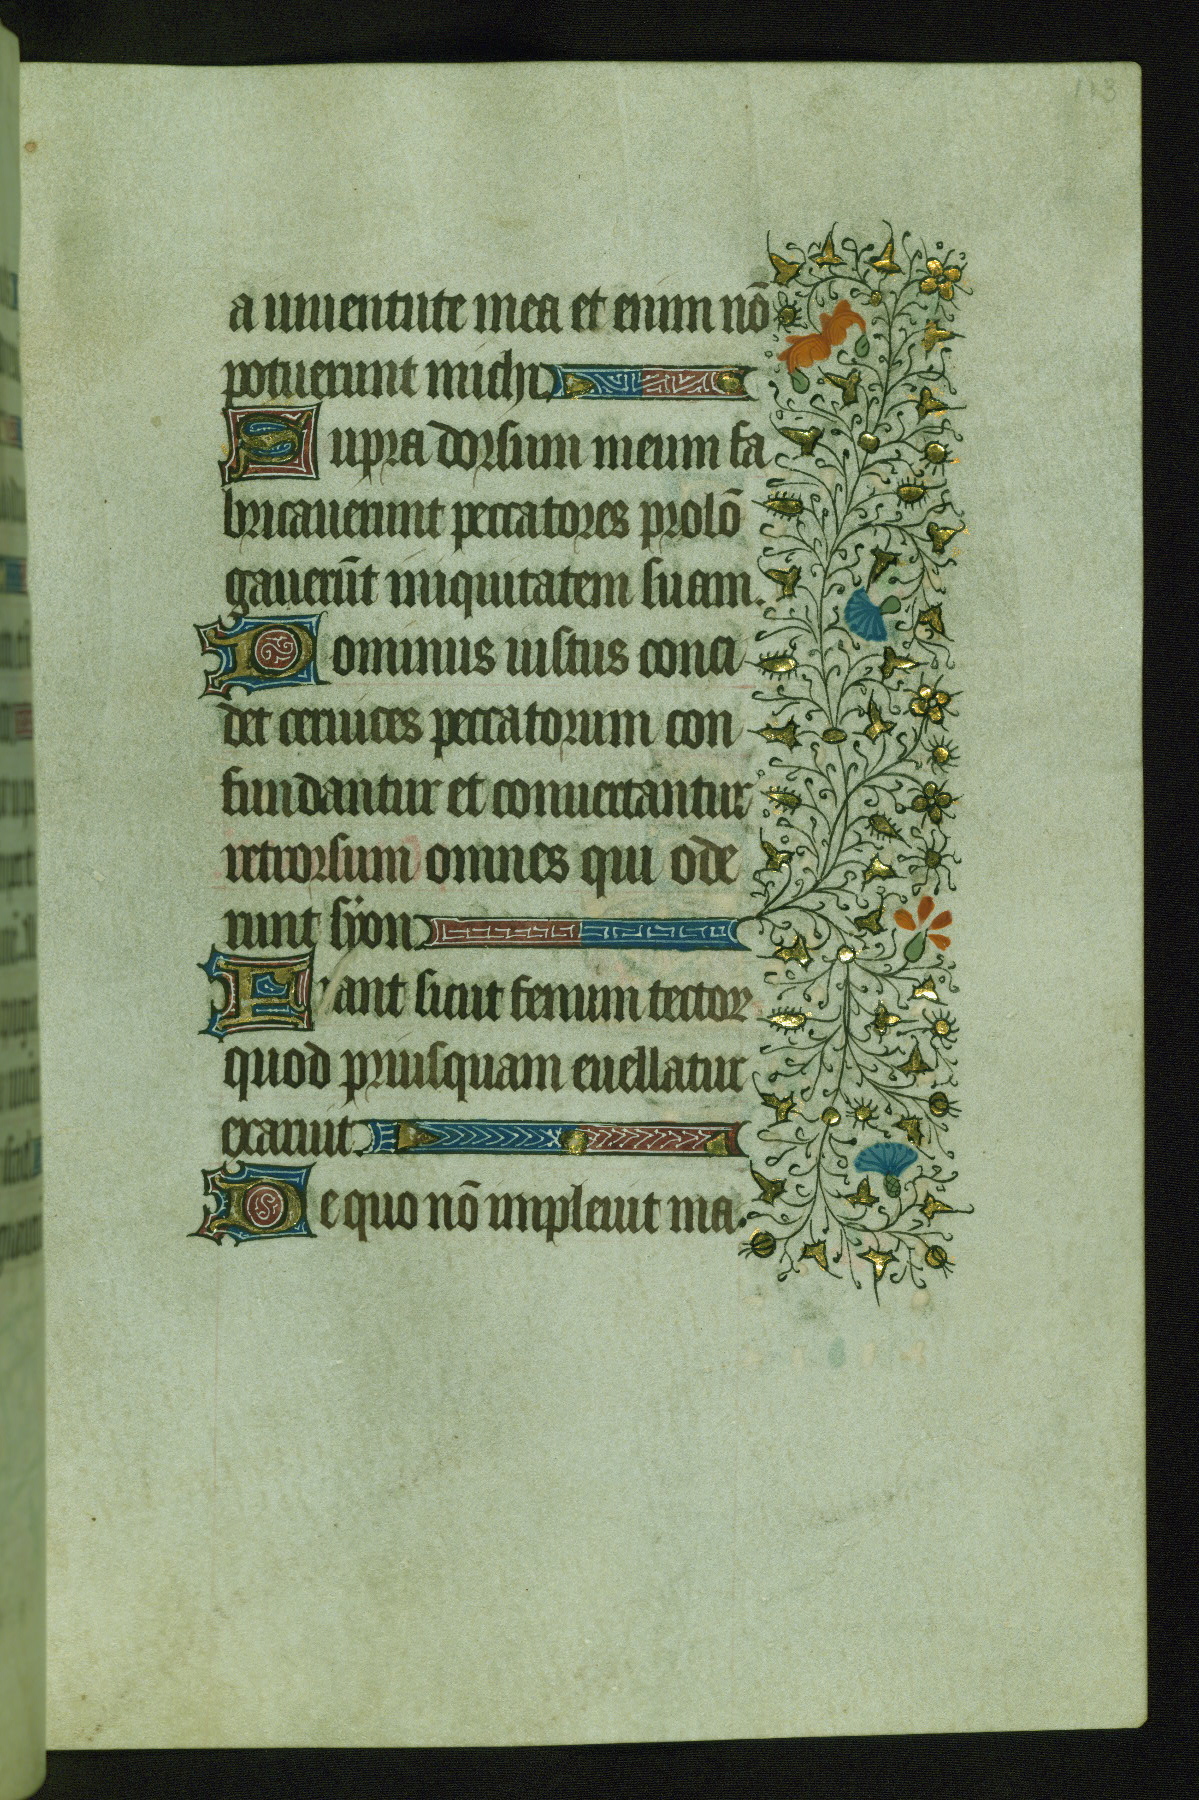 113
a iuuentute mea et enim nō
potuerunt michi
Supra dorsum meum fa
bricauerunt peccatores prolō
gauerūt iniquitatem suam.
Dominus iustus conci
det ceruices peccatorum con
fundantur et conuertantur
retrorsum omnes qui ode
runt syon
Fiant sicut fenum tector
quod priusquam euellatur
exaruit.
De quo nō impleuit ma.